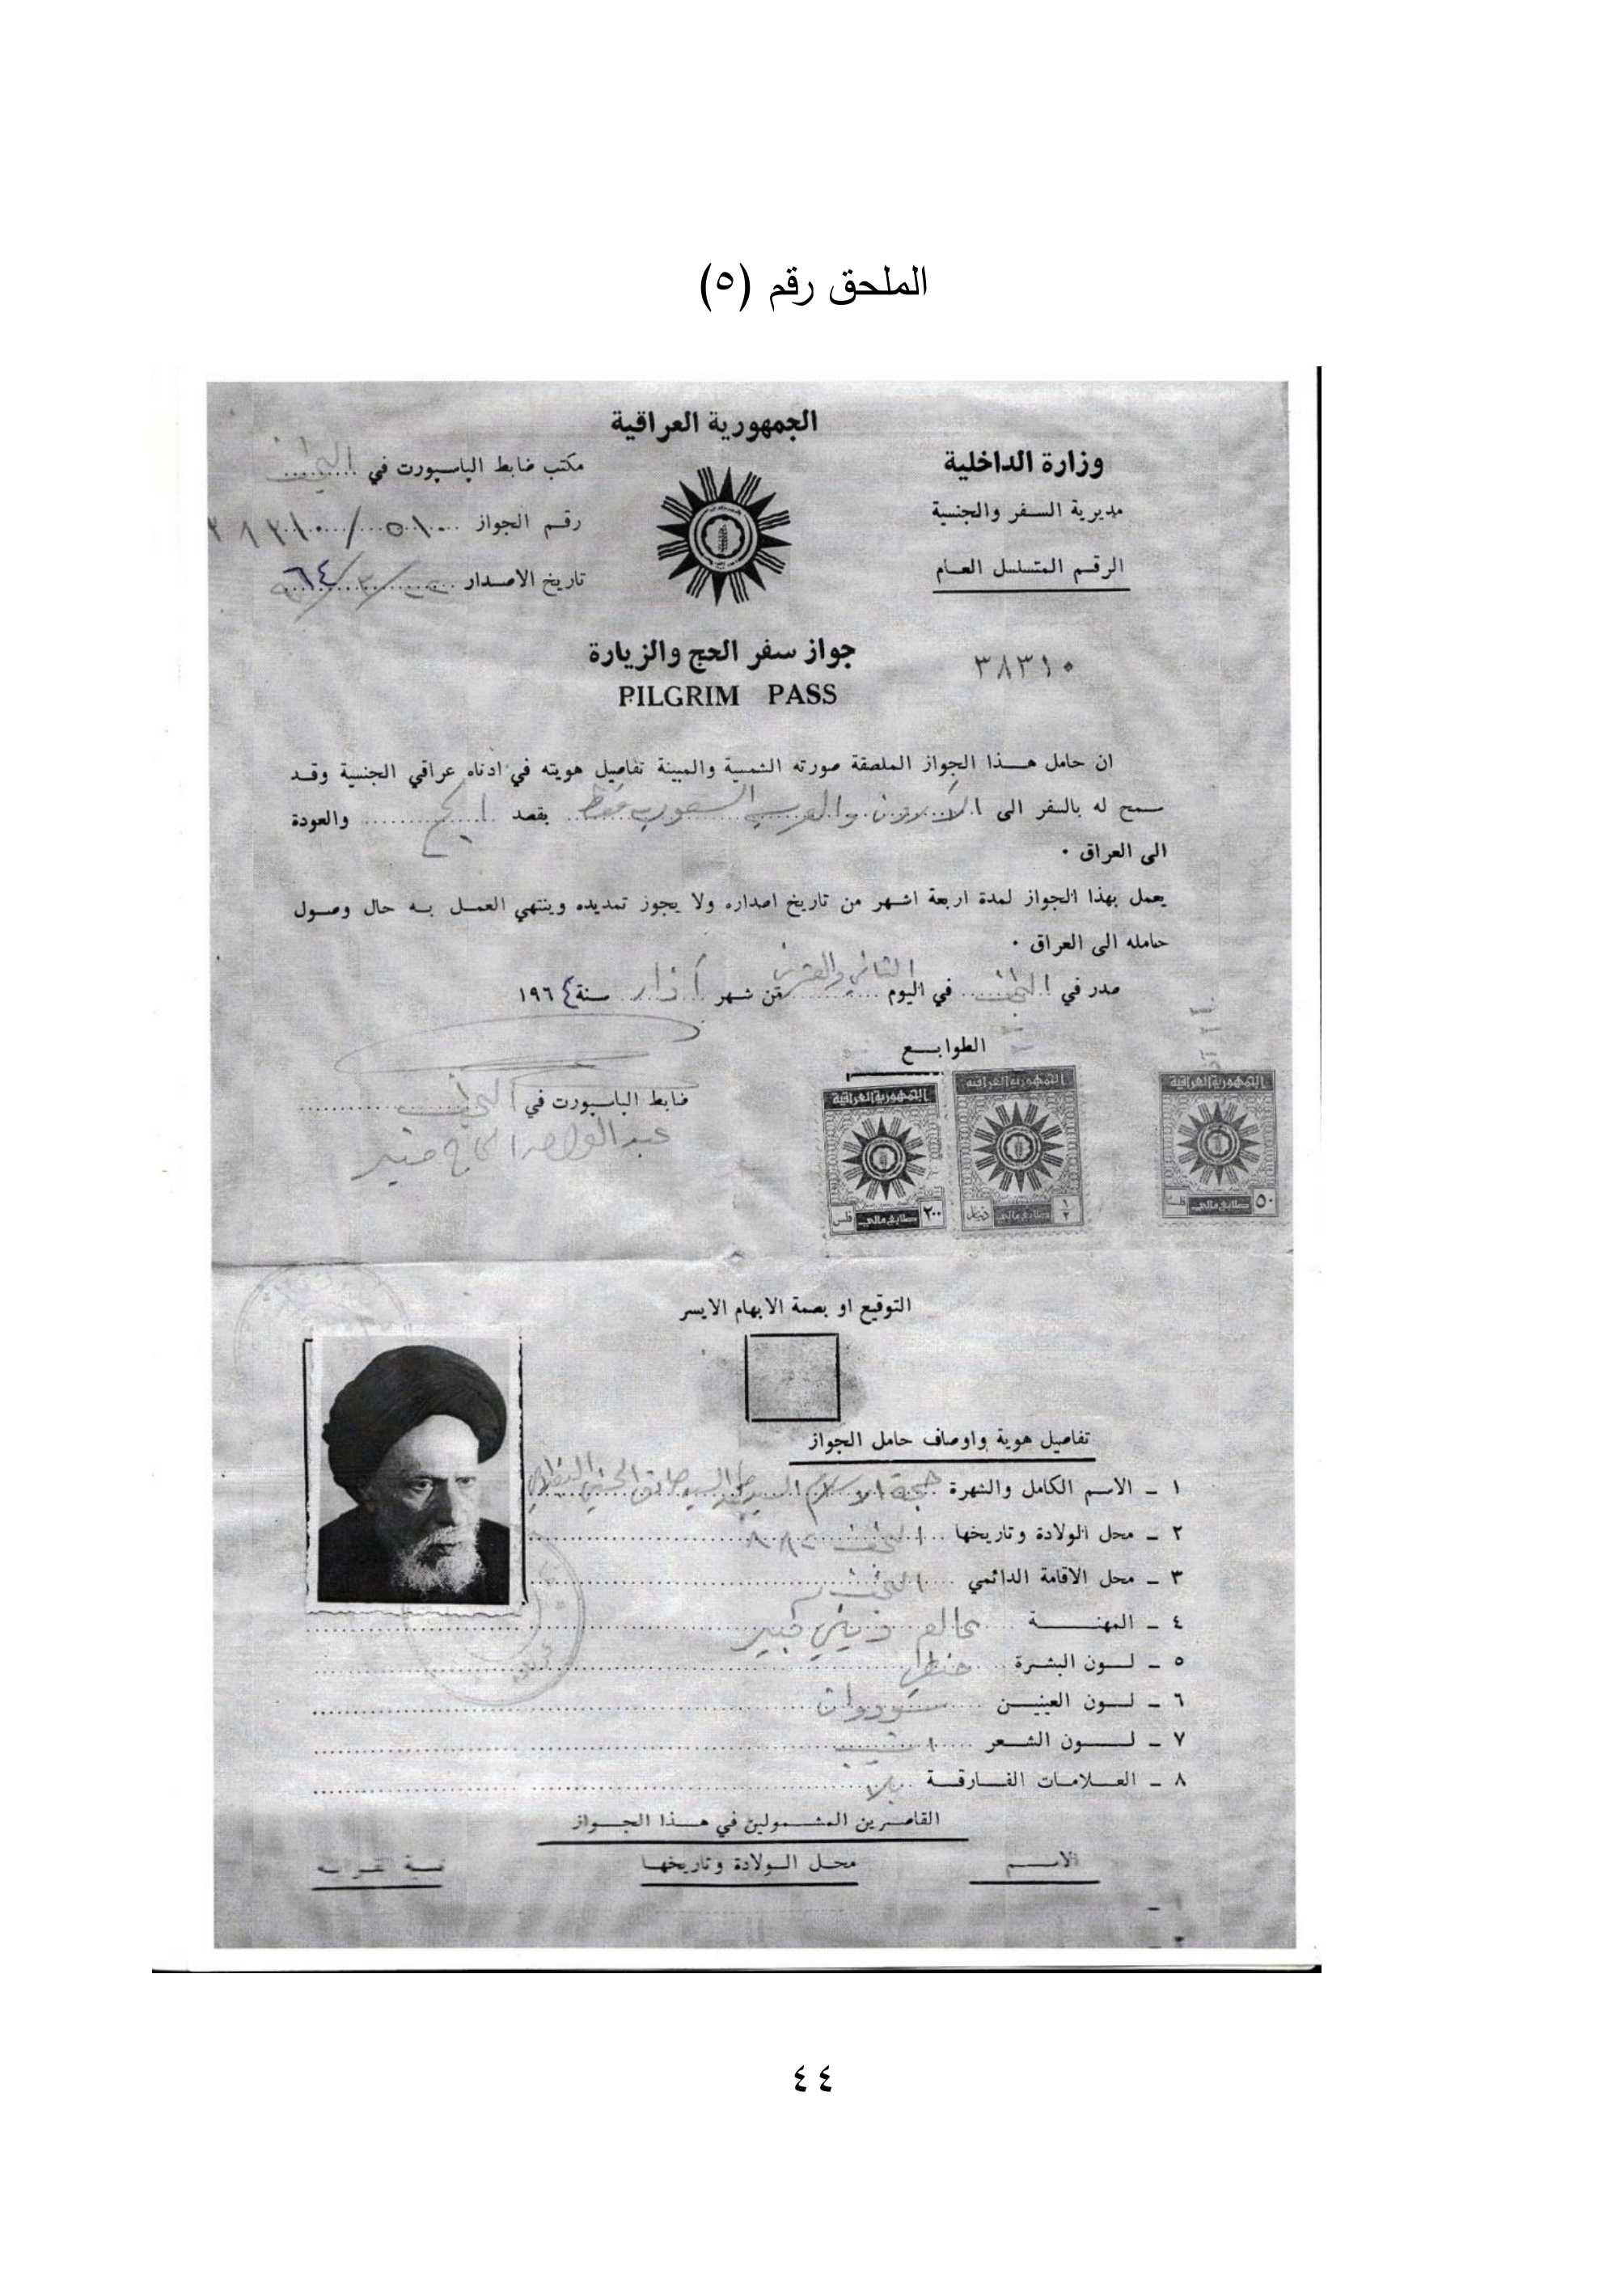 الملحق رقم (٥)
الجمهورية العراقية
وزارة الداخلية
مديرية السفر والجنسية
الرقم المتسلسل العام
٣٨٣١٠
مكتب ضابط الپاسپورت في النجف
رقم الجواز ٥١٠ / ٣٨٣١٠
تاريخ الاصدار ٢٢/٣/٩٦٤
جواز سفر الحج والزيارة
PILGRIM PASS
ان حامل هذا الجواز الملصقة صورته الشمسية والمبينة تفاصيل هويته في ادناه عراقي الجنسية وقد
سمح له بالسفر الى الاردن والعربية السعودية فقط بقصد الحج والعودة
الى العراق ٠
يعمل بهذا الجواز لمدة اربعة اشهر من تاريخ اصداره ولا يجوز تمديده وينتهي العمل به حال وصول
حامله الى العراق ٠
صدر في النجف في اليوم الثاني والعشرين من شهر آذار سنة ١٩٦٤
الطوابع
الجمهورية العراقية
٢٠٠ طابع مالي فلس
الجمهورية العراقية
١/٢ طابع مالي دينار
الجمهورية العراقية
٥٠ طابع مالي فلسا
ضابط الپاسپورت في النجف
عبد الواحد الحاج
التوقيع او بصمة الابهام الايسر
تفاصيل هوية واوصاف حامل الجواز
١ ـ الاسم الكامل والشهرة حجة الاسلام السيد السيد صادق الحسني
٢ ـ محل الولادة وتاريخها النجف
٣ ـ محل الاقامة الدائمي النجف
٤ ـ المهنة عالم ديني كبير
٥ ـ لون البشرة حنطي
٦ ـ لون العينين سوداوان
٧ ـ لون الشعر اشيب
٨ ـ العلامات الفارقة بلا
القاصرين المشمولين في هذا الجواز
الاسم محل الولادة وتاريخها
٤٤